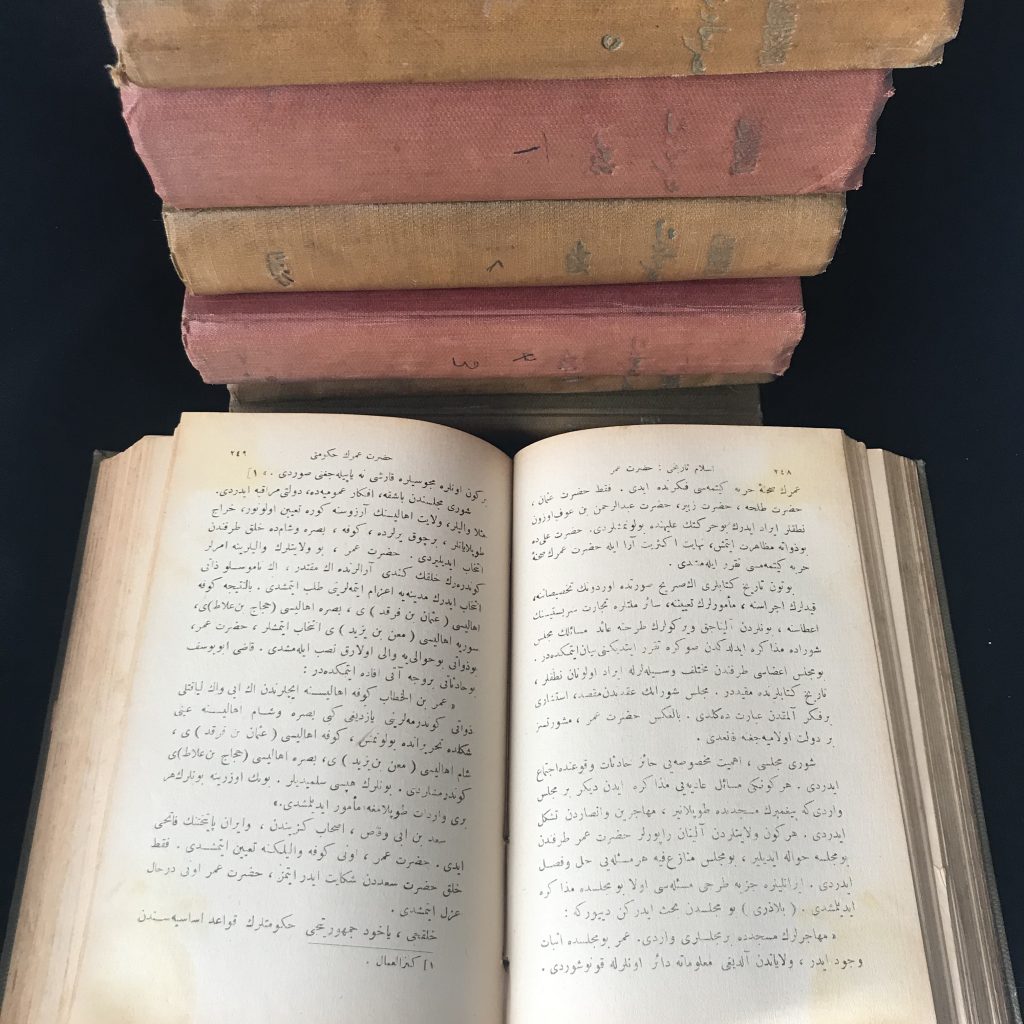 ٢٤٨
اسلام تاريخى : حضرت عمر
عمرك صحنهٔ حربه كيتمه‌سى فكرنده ايدى . فقط حضرت عثمان ،
حضرت طلحه ، حضرت زبير، حضرت عبدالرحمن بن عوف اوزون
نطقلر ايراد ايدرك بوحركتك عليهنده بولونمشلردى . حضرت على‌ده
بوذواته مظاهرت ايتمش، نهايت اكثريت آرا ايله حضرت عمرك صحنهٔ
حربه كيتمه‌مسى تقرر ايله‌مشدى .
بوتون تاريخ كتابلرى اك‌صريح صورتده اوردونك تخصيصاتنه،
قيدلرك اجراسنه، مأمورلرك تعييننه، سائر ملتلره تجارت سربستيسنك
اعطاسنه ، بونلردن آليناجق ويركولرك طرحنه عائد مسائلك مجلس
شوراده مذاكره ايدلدكدن صوكره تقرر ايتديكنى بيان‌ايتمكده‌در.
بومجلس اعضاسى طرفندن مختلف وسيله‌لرله ايراد اولونان نطقلر ،
تاريخ كتابلرنده مقيددر . مجلس شورانك عقدندن‌مقصد، استشارى
برفكر آلمقدن عبارت دكلدى . بالعكس حضرت عمر ، مشورتسز
بر دولت اولاميه‌جغنه قائلدى .
شورى مجلسى ، اهميت مخصوصه‌يى حائز حادثات وقوعنده‌اجتماع
ايدردى . هركونكى مسائل عاديه‌يى مذاكره ايدن ديكر بر مجلس
واردى‌كه پيغمبرك مسجدده طوپلانير ، مهاجرين وانصاردن تشكل
ايدردى . هركون ولايتلردن آلينان راپورلر حضرت عمر طرفندن
بومجلسه حواله ايديلير ، بومجلس متنازع‌فيه هرمسئله‌يى حل وفصل
ايدردى . ايرانليلره جزيه طرحى مسئله‌سى اولا بو مجلسده مذاكره
ايدلمشدى . ( بلاذرى ) بو مجلسدن بحث ايدركن دييوركه :
« مهاجرلرك مسجدده برمجلسلرى واردى. عمر بومجلسده اثبات
وجود ايدر ، ولاياتدن آلديغى معلوماته دائر اونلرله قونوشوردى .
حضرت عمرك حكومتى
٢٤٩
بركون اونلره مجوسيلره قارشى نه ياپيله‌جغنى صوردى . » [١
شورى مجلسندن باشقه، افكار عموميه‌ده، دولتى‌مراقبه ايدردى.
مثلا واليلر، ولايت اهاليسنك آرزوسنه كوره تعيين اولونور، خراج
طوپلايانلر ، برچوق يرلرده ، كوفه ، بصره وشام‌ده خلق طرفندن
انتخاب ايديليردى . حضرت عمر ، بو ولايتلرك واليلرينه امرلر
كوندره‌رك خلقك كندى آرالرنده اك مقتدر ، اك ناموسلو ذاتى
انتخاب ايدرك مدينه‌يه اعزام ايتمه‌لرينى طلب ايتمشدى . بالنتيجه كوفه
اهاليسى ( عثمان بن فرقد ) ى ، بصره اهاليسى (حجاج بن‌علاط)ى،
سوريه اهاليسى ( معن بن يزيد ) ى انتخاب ايتمشلر ، حضرت عمر،
بوذواتى بوحوالى‌يه والى اولارق نصب ايله‌مشدى . قاضى ابويوسف
بوحادثاتى بروجه آتى افاده ايتمكده‌در :
« عمر بن الخطاب كوفه اهاليسنه ايچلرندن اك ايى واك لياقتلى
ذواتى كوندرمه‌لرينى يازديغى كبى بصره وشام اهاليسنه عينى
شكلده تحريراتده بولونمش ، كوفه اهاليسى ( عثمان بن فرقد ) ى ،
شام اهاليسى ( معن بن يزيد ) ى، بصره اهاليسى (حجاج بن‌علاط)ى
كوندرمشلردى . بونلرك هپسى سلميديلر . بونك اوزرينه بونلرك‌هر
برى واردات طوپلامغه مأمور ايدلمشدى.»
سعد بن ابى وقاص ، اصحاب كزيندن ، وايران پايتختنك فاتحى
ايدى . حضرت عمر ، اونى كوفه واليلكنه تعيين ايتمشدى . فقط
خلق حضرت سعددن شكايت ايدر ايتمز ، حضرت عمر اونى درحال
عزل ايتمشدى .
خلقجى ، ياخود جمهوريتجى حكومتلرك قواعد اساسيه‌سندن
[١ كنزالعمال .